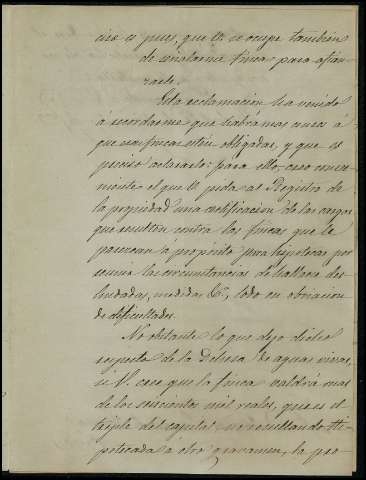 es pues, que V. se ocupe tambien
de señalarme finca para afian-
zarlo.
Esta reclamacion ha venido
á recordarme que habrá mas censos á
que esas fincas estén obligadas, y que es
preciso aclararlo: para ello, creo conve-
niente el que V. pida al Registro de
la propiedad una certificacion de las cargas
que resulten contra las fincas que le
parezcan á propósito para hipotecar por
reunir las circunstancias de hallarse des-
lindadas, medidas &., todo en obviacion
de dificultades.
No obstante lo que dejo dicho
respecto de la Dehesa de aguas vivas,
si V. cree que la finca valdrá mas
de los seiscientos mil reales, que es el
triple del capital, no resultando hi-
potecada á otro gravamen, la pro-